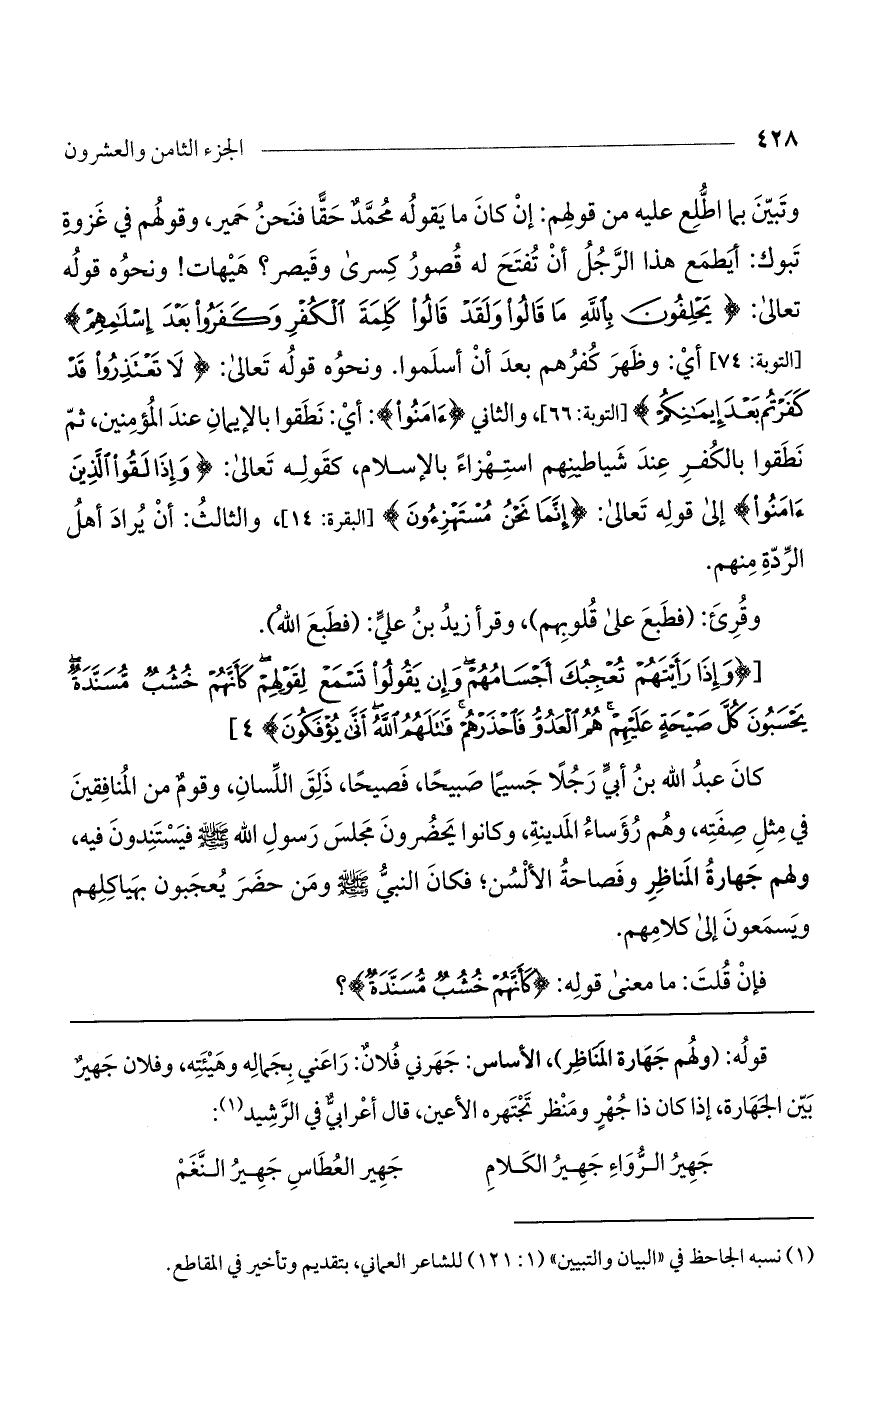 ٤٢٨ الجزء الثامن والعشرون
وتَبيّنَ بما اطُّلِع عليه من قولهِم: إنْ كانَ ما يَقولُه مُحمَّدٌ حَقًّا فنَحنُ حَمير، وقولُهم في غَزوةِ
تَبوك: أيَطمَع هذا الرَّجُلُ أنْ تُفتَحَ له قُصورُ كِسرىٰ وقَيصر؟ هَيْهات! ونحوُه قولُه
تعالىٰ: ﴿يَحْلِفُونَ بِٱللَّهِ مَا قَالُوا۟ وَلَقَدْ قَالُوا۟ كَلِمَةَ ٱلْكُفْرِ وَكَفَرُوا۟ بَعْدَ إِسْلَـٰمِهِمْ﴾
[التوبة: ٧٤] أيْ: وظَهرَ كُفرُهم بعدَ أنْ أسلَموا. ونحوُه قولُه تَعالىٰ: ﴿لَا تَعْتَذِرُوا۟ قَدْ
كَفَرْتُم بَعْدَ إِيمَـٰنِكُمْ﴾ [التوبة: ٦٦]، والثاني ﴿ءَامَنُوا۟﴾: أيْ: نَطَقوا بالإيمانِ عندَ المُؤمِنين، ثمّ
نَطَقوا بالكُفرِ عِندَ شَياطينِهم استِهْزاءً بالإسلام، كقَولِه تَعالىٰ: ﴿وَإِذَا لَقُوا۟ ٱلَّذِينَ
ءَامَنُوا۟﴾ إلىٰ قولِه تَعالىٰ: ﴿إِنَّمَا نَحْنُ مُسْتَهْزِءُونَ﴾ [البقرة: ١٤]، والثالثُ: أنْ يُرادَ أهلُ
الرِّدّةِ مِنهم.
وقُرِئَ: (فطَبعَ علىٰ قُلوبِهم)، وقرأ زيدُ بنُ عليٍّ: (فطَبعَ اللهُ).
[﴿وَإِذَا رَأَيْتَهُمْ تُعْجِبُكَ أَجْسَامُهُمْ ۖ وَإِن يَقُولُوا۟ تَسْمَعْ لِقَوْلِهِمْ ۖ كَأَنَّهُمْ خُشُبٌ مُّسَنَّدَةٌ ۖ
يَحْسَبُونَ كُلَّ صَيْحَةٍ عَلَيْهِمْ ۚ هُمُ ٱلْعَدُوُّ فَٱحْذَرْهُمْ ۚ قَـٰتَلَهُمُ ٱللَّهُ ۖ أَنَّىٰ يُؤْفَكُونَ﴾ ٤]
كانَ عبدُ الله بنُ أُبيٍّ رَجُلًا جَسيمًا صَبيحًا، فَصيحًا، ذَلِقَ اللِّسان، وقومٌ من المُنافِقينَ
في مِثلِ صِفَتِه، وهُم رُؤَساءُ المَدينةِ، وكانوا يَحضُرونَ مَجلسَ رَسولِ الله ﷺ فيَسْتَنِدونَ فيه،
ولهم جَهارةُ المَناظِرِ وفَصاحةُ الألْسُن؛ فكانَ النبيُّ ﷺ ومَن حضَرَ يُعجَبون بهَياكِلِهم
ويَسمَعونَ إلىٰ كلامِهم.
فإنْ قُلتَ: ما معنىٰ قولِه: ﴿كَأَنَّهُمْ خُشُبٌ مُّسَنَّدَةٌ﴾؟
قولُه: (ولهُم جَهَارة المَناظِر)، الأساس: جَهَرني فُلانٌ: رَاعَني بِجَمالِه وهَيْئَتِه، وفلان جَهيرٌ
بَيّن الجَهَارة، إذا كان ذا جُهْرٍ ومَنْظر تَجْتَهره الأعين، قال أعْرابيٌّ في الرَّشِيد(١):
جَهِيرُ الرُّوَاءِ جَهِيرُ الكَلامِ جَهِير العُطَاسِ جَهِيرُ النَّغَمْ
(١) نسبه الجاحظ في «البيان والتبيين» (١: ١٢١) للشاعر العماني، بتقديم وتأخير في المقاطع.